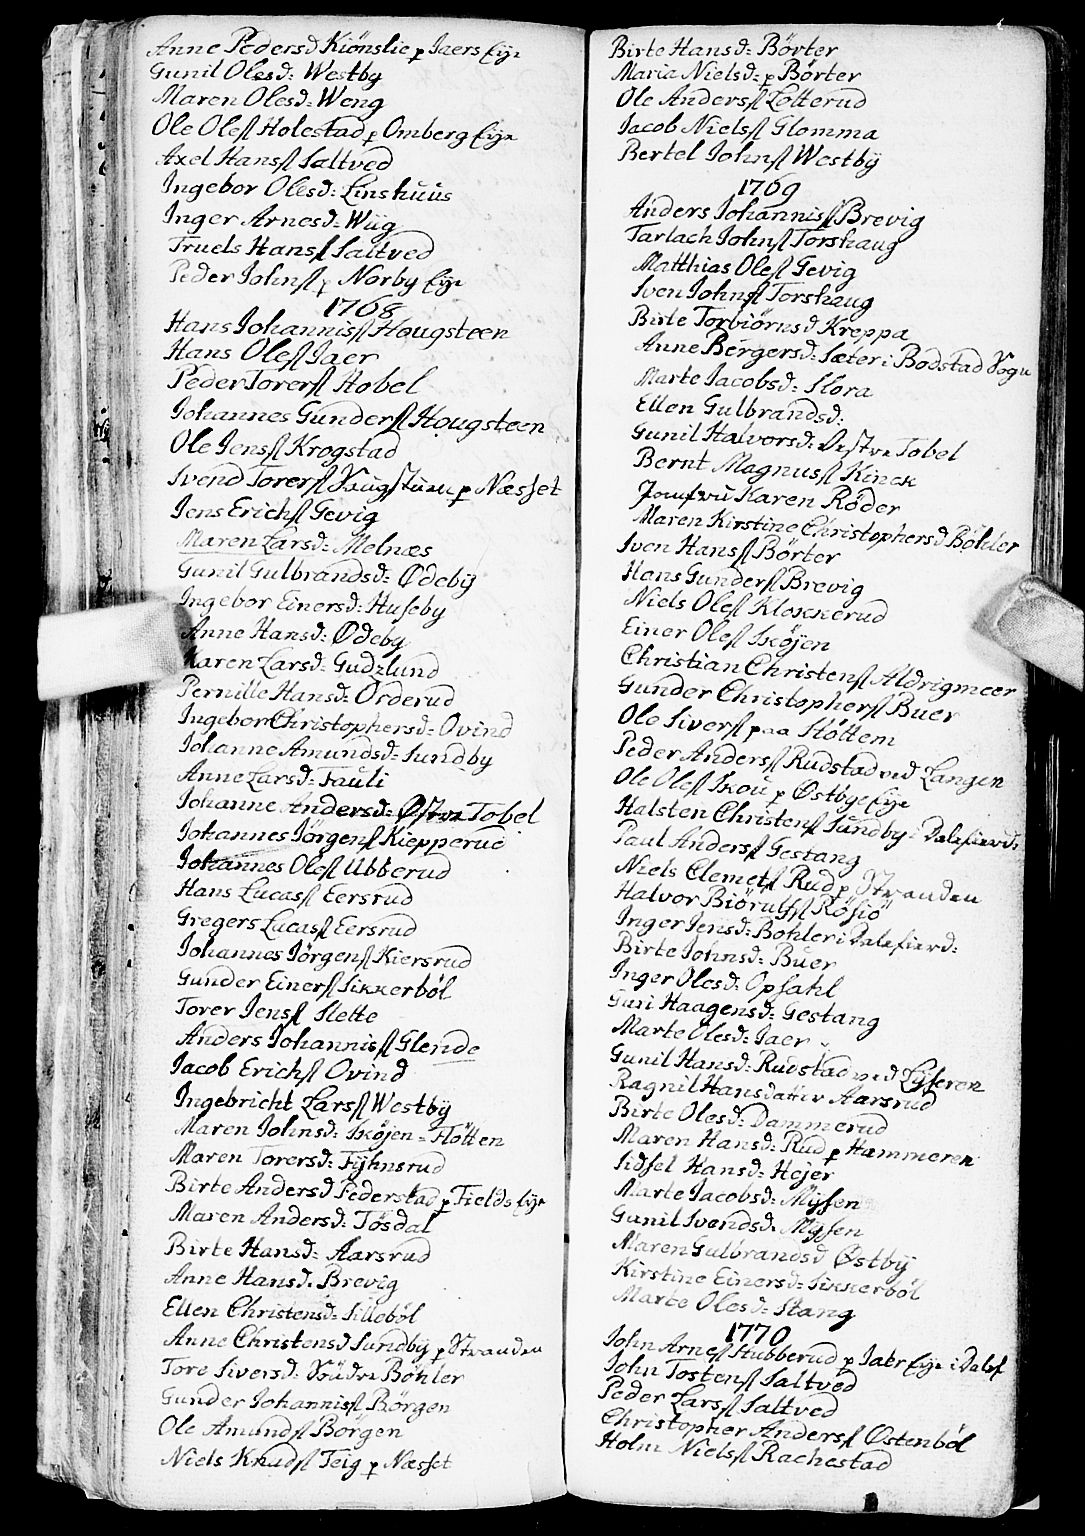 Anne Pedersd Kiönslie p Jaers Eije
Gunil Olesd: Westby
Maren Olesd: Weng
Ole Olesſl Holestad p Omberg Eije
Axel Hansſl Saltved
Ingebor Olesd: Linshuus
Inger Arnesd: Wiig
Truels Hansſl Saltved
Peder Johnſl p Norby Eije
1768
Hans Johannisſl Hougsteen
Hans Oleſl Jaer
Peder Torerſl Hobel
Johannes Gunderſl Hougsteen
Ole Jensſl Krogstad
Svend Torerſl p Næsset
Jens Erichſl Gevig
Maren Larsd: Melnæs
Gunil Gulbrandsd: Ødeby
Ingebor Einersd: Huseby
Anne Hansd: Ødeby
Karen Larsd: Gudzlund
Pernille Hansd: Orderud
Ingebor Christophersd: Ovind
Johanne Amundsd: Sundby
Anne Larsd: Fauli
Johanne Andersd: Østre Tobel
Johannes Jörgenſl Kiepperud
Johannes Oleſl Ubberud
Hans Lucasſl Eersrud
Gregers Lucasſl Eersrud
Johannes Jörgenſl Kiersrud
Gunder Einerſl Sikkerböl
Torer Jensſl Slette
Anders Johannisſl Glende
Jacob Erichſl Ovind
Ingebricht Larsſl Westby
Maren Johnsd: Skøjen = Flötten
Maren Torersd: Fijhnsrud
Birte Andersd Federstad p Fields Eije
Maren Andersd: Tösdal
Birte Hansd: Aarsrud
Anne Hansd: Brevig
Ellen Christensd: Silleböl
Anne Christensd Sundby p Stranden
Tore Siversd: Söndre Böhler
Gunder Johannisſl Börgen
Ole Amundſl Börgen
Niels Knudſl Teig p Næsset
Birte Hansd: Börter
Maria Nielsd: p Börter
Ole Andersſl Lötterud
Jacob Nielsſl Glomma
Bertel Johnſl Westby
1769
Anders Johannisſl Brevig
Tarlach Johnſl Torshaug
Matthias Oleſl Gevig
Sven Johnſl Torshaug
Birte Torbiörnsd Kreppa
Anne Bergersd: Sæter i Bodstad Sogn
Marte Jacobsd: Flora
Ellen Gulbrandsd:
Gunil Halvorsd: Vestre Tobel
Bernt Magnusſl Kinck
Jomfru Karen Röder
Maren Kirstine Christophersd Böhler
Sven Hansſl Börter
Hans Gunderſl Brevig
Niels Oleſl Klokkerud
Einer Oleſl Skøjen
Christian Christenſl Aldrigmeer
Gunder Christopherſl Buer
Ole Siverſl paa Flöttem
Peder Andersſl Rudstad ved Langen
Ole Oleſl Skou p Østbye Eije
Halsten Christenſl Sundby i Dalefierd:
Paul Andersſl Gestang
Niels Clemetſl Rud p Stranden
Halvor Biörulfſl Rösiö
Inger Jensd: Bohler i Dalefierd:
Birte Johnsd: Buer
Inger Olesd: Opsahl
Guri Haagensd: Gestang
Marte Olesd: Jaer
Gunil Hansd: Rudstad ved Lijseren
Ragnil Hansdatter Aarsrud
Birte Olesd: Dammerud
Maren Hansd: Rud p Hammeren
Sidsel Hansd: Höjer
Marte Jacobsd: Mijsen
Gunil Svendsd: Mijsen
Maren Gulbrandsd Østby
Kirstine Einersd: Sikkerböl
Marte Olesd: Stang
1770
John Arneſl Stubberud p Jaer Eije i Dalef
John Tostenſl Saltved
Peder Larsſl Saltved
Christopher Andersſl Østenböl
Holm Nielsſl Rachestad